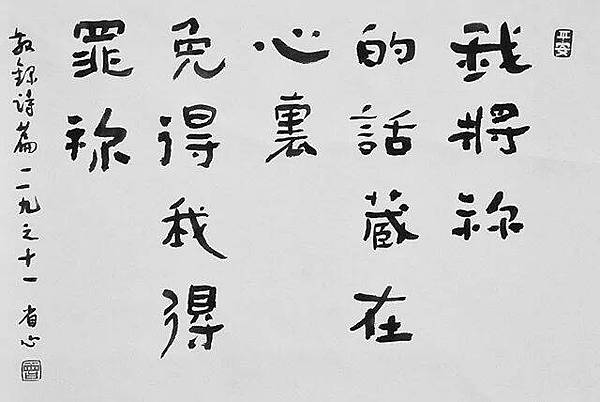 我將祢
的話藏在
心裏
免得我得
罪祢
敬錄詩篇一一九之十一 省心